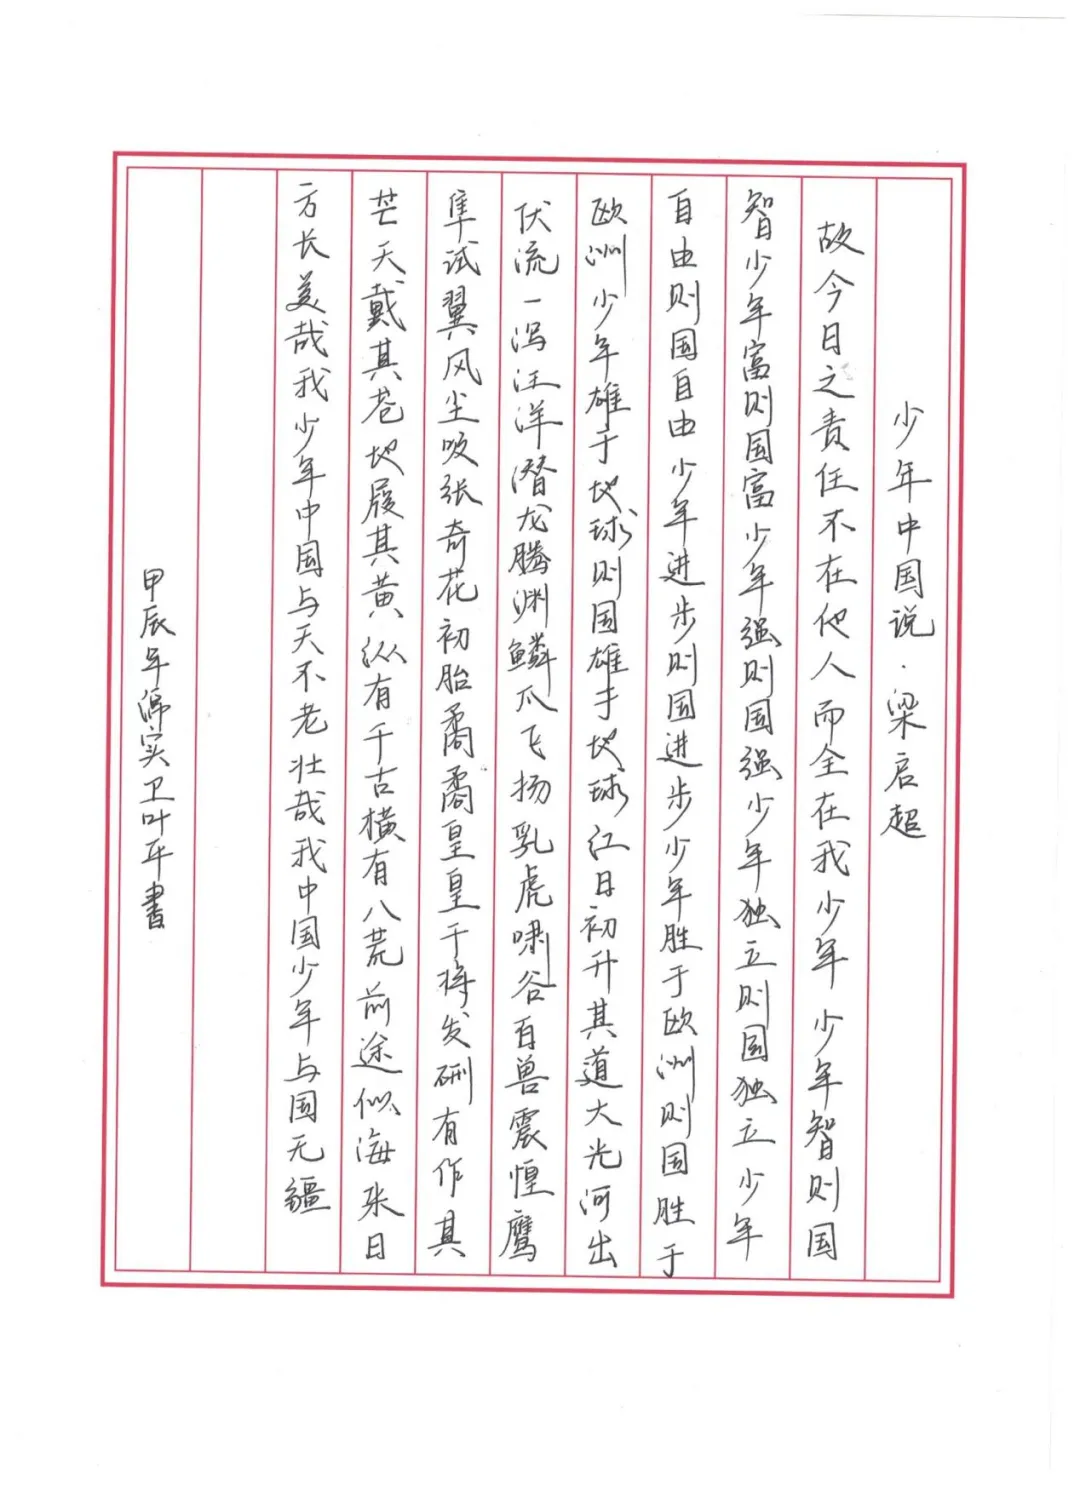 少年中国说·梁启超
故今日之责任不在他人而全在我少年少年智则国
智少年富则国富少年强则国强少年独立则国独立少年
自由则国自由少年进步则国进步少年胜于欧洲则国胜于
欧洲少年雄于地球则国雄于地球江日初升其道大光河出
伏流一泻汪洋潜龙腾渊鳞爪飞扬乳虎啸谷百兽震惶鹰
隼试翼风尘吸张奇花初胎矞矞皇皇干将发硎有作其
芒天戴其苍地履其黄纵有千古横有八荒前途似海来日
方长美哉我少年中国与天不老壮哉我中国少年与国无疆
甲辰年 实卫叶 書